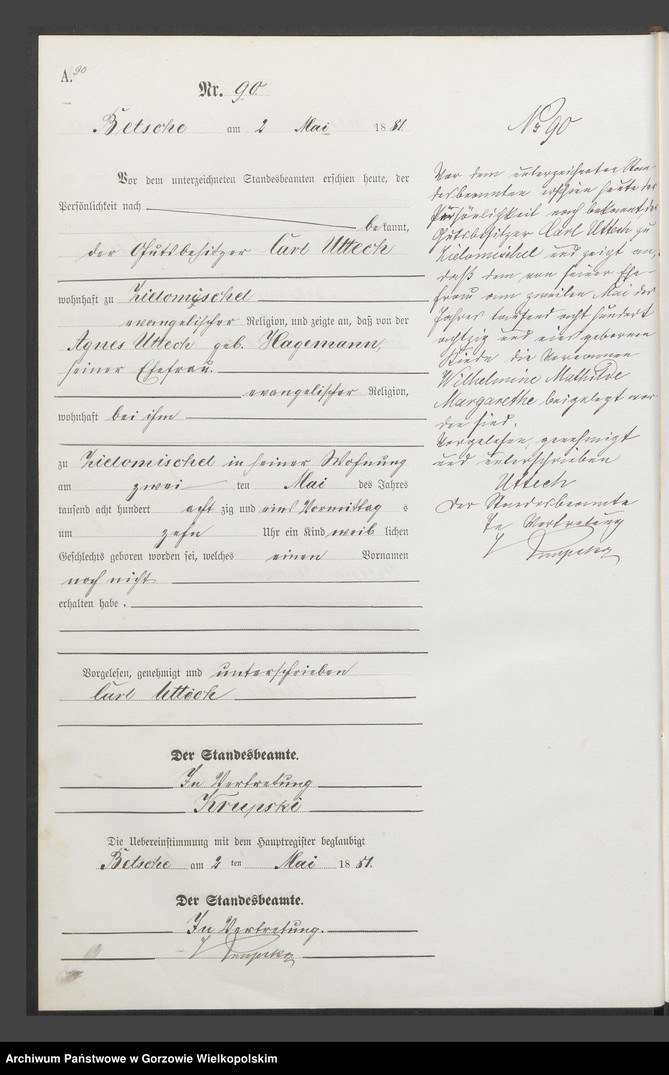 A. 90
Nr. 90
Betsche am 2 Mai 1881.
Vor dem unterzeichneten Standesbeamten erschien heute, der
Persönlichkeit nach
bekannt,
der Gutsbesitzer Carl Uttech
wohnhaft zu Zielomischel
evangelischer Religion, und zeigte an, daß von der
Agnes Uttech geb. Hagemann,
seiner Ehefrau.
evangelischer Religion,
wohnhaft bei ihm
zu Zielomischel in seiner Wohnung
am zwei ten Mai des Jahres
tausend acht hundert acht zig und eins Vormittag s
um zehn Uhr ein Kind weib lichen
Geschlechts geboren worden sei, welches einen Vornamen
noch nicht
erhalten habe.
Vorgelesen, genehmigt und unterschrieben
Carl Uttech
Der Standesbeamte.
In Vertretung
Krupski
Die Uebereinstimmung mit dem Hauptregister beglaubigt
Betsche am 2 ten Mai 1881.
Der Standesbeamte.
In Vertretung.
No 90
Vor dem unterzeichneten Stan-
desbeamten erschien heute der
Persönlichkeit nach bekannt der
Gutsbesitzer Carl Uttech zu
Zielomischel und zeigt an,
daß dem von seiner Ehe-
frau am zweiten Mai des
Jahres tausend acht hundert
achtzig und eins geborenen
Kinde die Vornamen
Wilhelmine Mathilde
Margarethe beigelegt wor-
den sind.
Vorgelesen, genehmigt
und unterschrieben
Uttech
Der Standesbeamte
In Vertretung
Archiwum Państwowe w Gorzowie Wielkopolskim